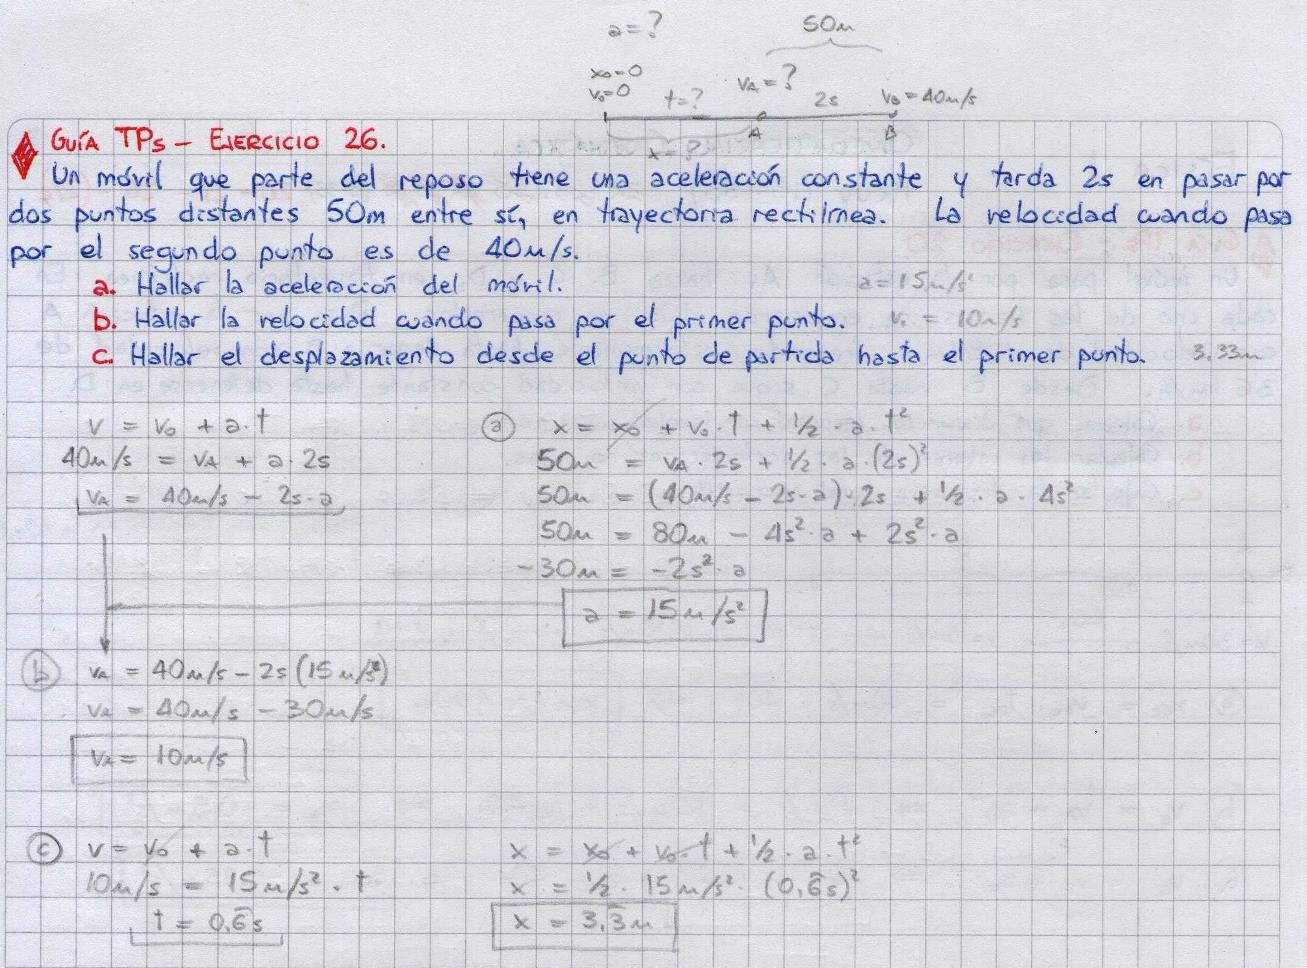 a=?
50m
x₀=0
v₀=0
t=?
vA=?
2s
vB=40m/s
A
B
x=?
GUÍA TPs - EJERCICIO 26.
Un móvil que parte del reposo tiene una aceleración constante y tarda 2s en pasar por
dos puntos distantes 50m entre sí, en trayectoria rectilínea. La velocidad cuando pasa
por el segundo punto es de 40m/s.
a. Hallar la aceleración del móvil. a=15m/s²
b. Hallar la velocidad cuando pasa por el primer punto. v. = 10m/s
c. Hallar el desplazamiento desde el punto de partida hasta el primer punto. 3.33m
v = v₀ + a.t
40m/s = vA + a.2s
vA = 40m/s - 2s.a
a x = x₀ + v₀.t + 1/2.a.t²
50m = vA.2s + 1/2.a.(2s)²
50m = (40m/s - 2s.a).2s + 1/2.a.4s²
50m = 80m - 4s².a + 2s².a
-30m = -2s².a
a = 15m/s²
b vA = 40m/s - 2s(15m/s²)
vA = 40m/s - 30m/s
vA = 10m/s
c v = v₀ + a.t
10m/s = 15m/s².t
t = 0,6̄s
x = x₀ + v₀.t + 1/2.a.t²
x = 1/2.15m/s².(0,6̄s)²
x = 3,3̄m